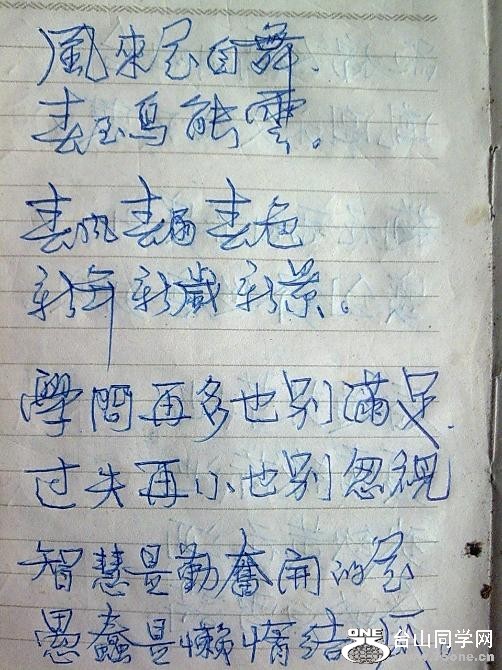 風來花自舞.
春至鳥能雲。
春风春雨春色
新年新歲新景。
學問再多也别滿足.
过失再小也别忽視
智慧是勤奮開的花
愚蠢是懶惰结
ONE 台山同学网